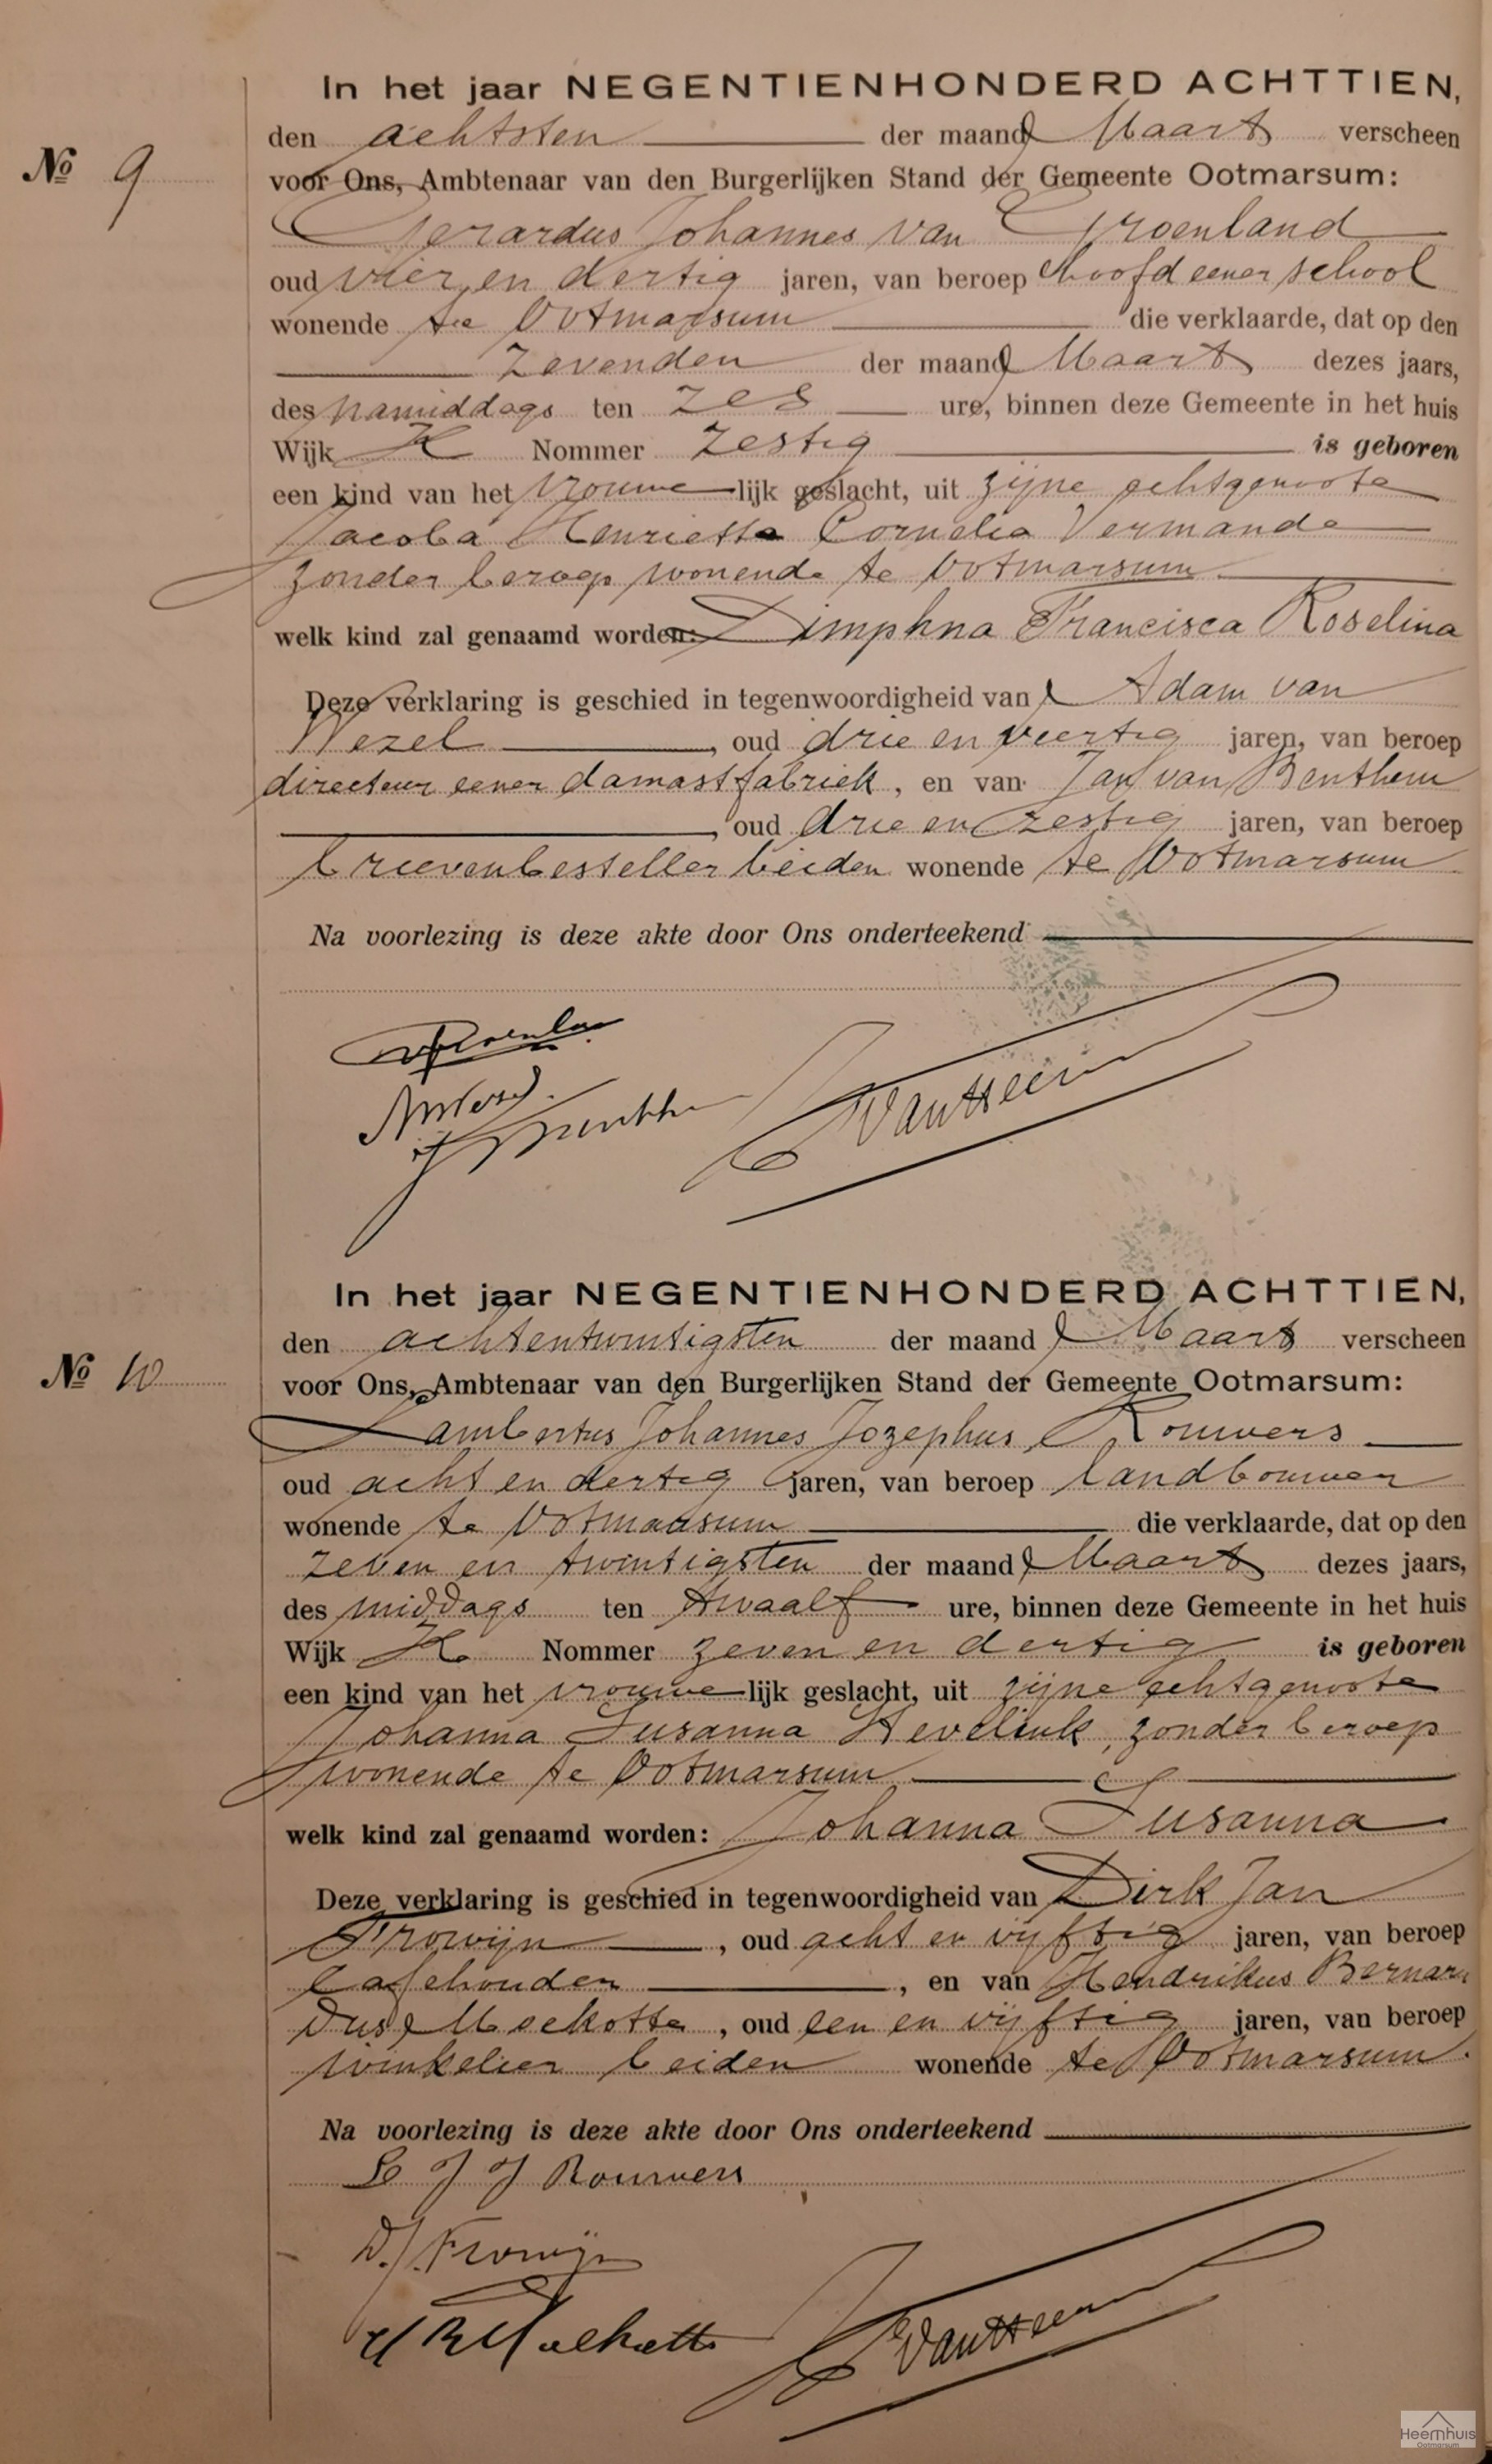 In het jaar NEGENTIENHONDERD ACHTTIEN,
den achtsten der maand Maart verscheen
No 9
voor Ons, Ambtenaar van den Burgerlijken Stand der Gemeente Ootmarsum:
Gerardus Johannes van Groenland
oud vier en dertig jaren, van beroep hoofd eener school
wonende te Ootmarsum die verklaarde, dat op den
zevenden der maand Maart dezes jaars,
des namiddags ten zes ure, binnen deze Gemeente in het huis
Wijk K Nommer zestig is geboren
een kind van het vrouwe lijk geslacht, uit zijne echtgenoote
Jacoba Henrietta Cornelia Vermande
zonder beroep wonende te Ootmarsum
welk kind zal genaamd worden: Dimphna Francisca Roselina
Deze verklaring is geschied in tegenwoordigheid van Adam van
Wezel, oud drie en veertig jaren, van beroep
directeur eener damastfabriek, en van Jan van Benthem
, oud drie en zestig jaren, van beroep
brievenbesteller beiden wonende te Ootmarsum
Na voorlezing is deze akte door Ons onderteekend
In het jaar NEGENTIENHONDERD ACHTTIEN,
den achtentwintigsten der maand Maart verscheen
No 10
voor Ons, Ambtenaar van den Burgerlijken Stand der Gemeente Ootmarsum:
Lambertus Johannes Jozephus Rouwers
oud acht en dertig jaren, van beroep landbouwer
wonende te Ootmarsum die verklaarde, dat op den
zeven en twintigsten der maand Maart dezes jaars,
des middags ten twaalf ure, binnen deze Gemeente in het huis
Wijk K Nommer zeven en dertig is geboren
een kind van het vrouwe lijk geslacht, uit zijne echtgenoote
Johanna Susanna Hevelink, zonder beroep
wonende te Ootmarsum
welk kind zal genaamd worden: Johanna Susanna
Deze verklaring is geschied in tegenwoordigheid van Dirk Jan
Frowijn, oud acht en vijftig jaren, van beroep
cafehouder, en van Hendrikus Bernar
dus Mockotte, oud een en vijftig jaren, van beroep
winkelier beiden wonende te Ootmarsum.
Na voorlezing is deze akte door Ons onderteekend
L J J Rouwers
D.J. Frowijn
Heemhuis
Ootmarsum